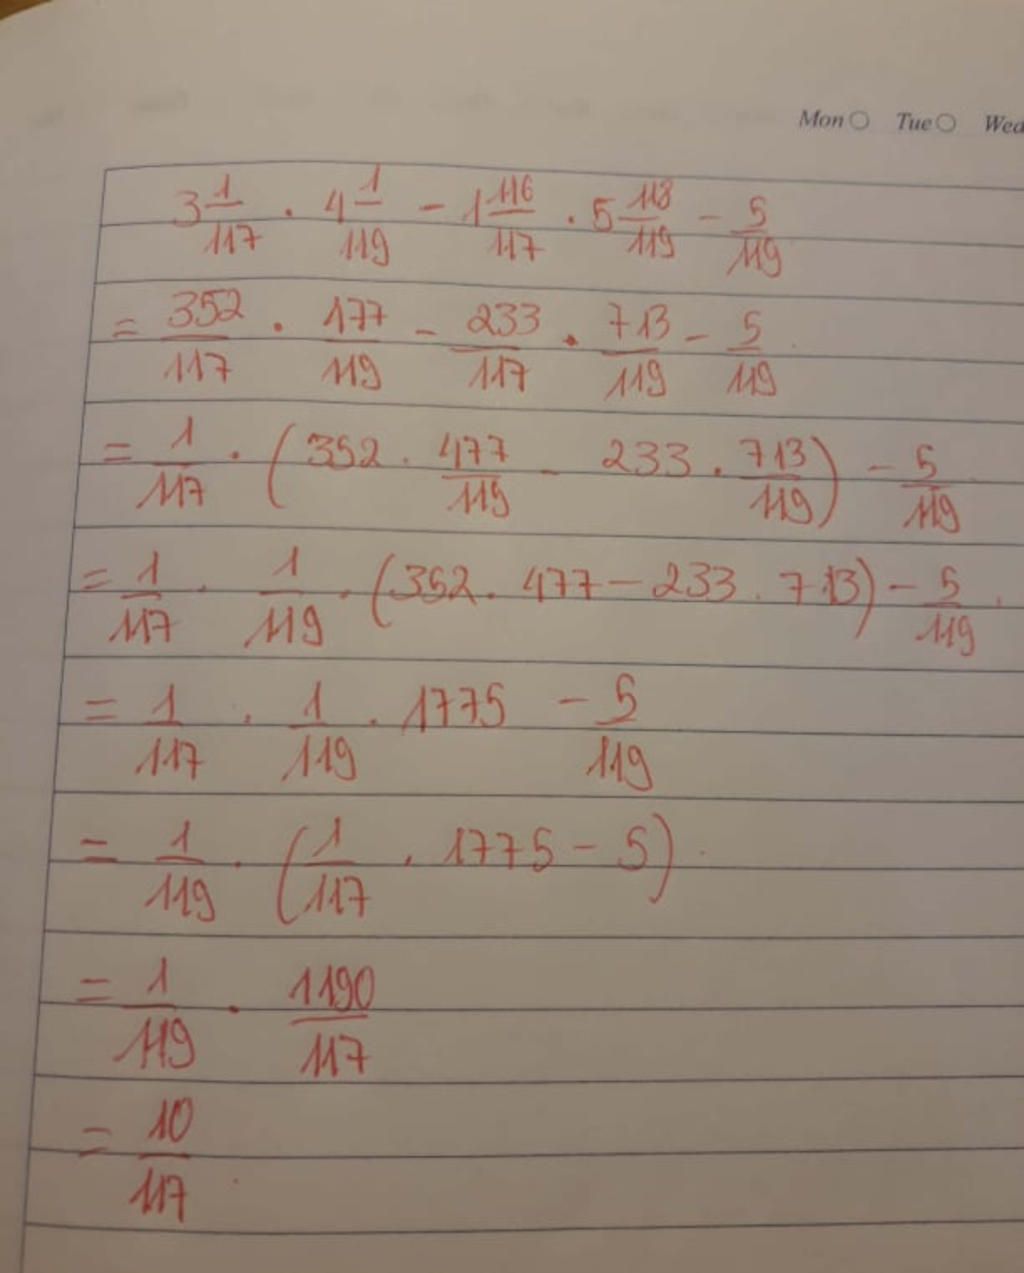 Mon Tue Wed
3 1/117 . 4 1/119 - 1 116/117 . 5 118/119 - 5/119
= 352/117 . 177/119 - 233/117 . 713/119 - 5/119
= 1/117 . (352 . 477/119 - 233 . 713/119) - 5/119
= 1/117 . 1/119 . (352 . 477 - 233 . 713) - 5/119
= 1/117 . 1/119 . 1775 - 5/119
= 1/119 . (1/117 . 1775 - 5)
= 1/119 . 1190/117
= 10/117